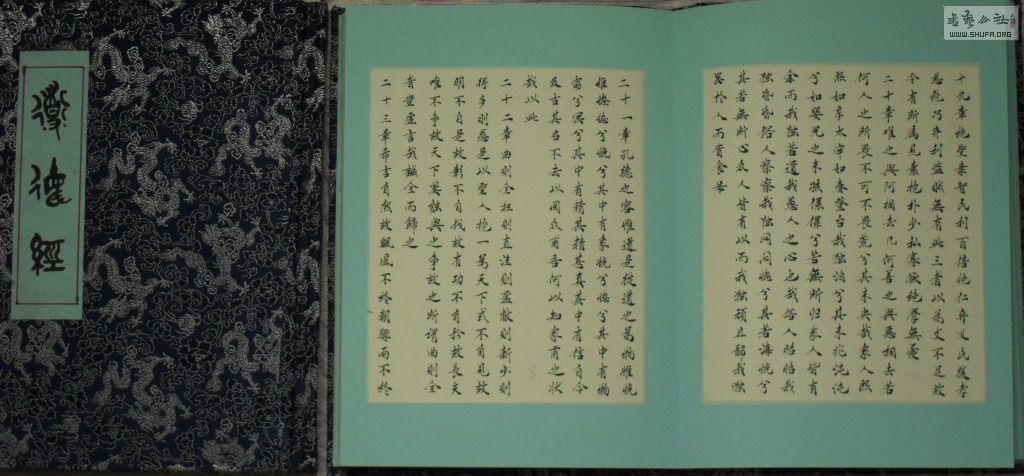 道德經
十九章絕聖棄智民利百倍絕仁弃义民復孝
慈絕巧弃利盜賊無有此三者以為文不足故
令有所屬見素抱朴少私寡欲絕學無憂
二十章唯之與阿相去几何善之與惡相去若
何人之所畏不可不畏荒兮其未央哉衆人熙
熙如享太牢如春登台我獨泊兮其未兆沌沌
兮如嬰兒之未孩儽儽兮若無所归衆人皆有
余而我獨若遺我愚人之心也哉俗人昭昭我
獨昏昏俗人察察我獨悶悶惚兮其若海恍兮
其若無所止衆人皆有以而我獨頑且鄙我獨
異於人而貴食母
二十一章孔德之容惟道是從道之為物惟恍
惟惚惚兮恍兮其中有象恍兮惚兮其中有物
窈兮冥兮其中有精其精甚真其中有信自今
及古其名不去以閱众甫吾何以知衆甫之狀
哉以此
二十二章曲則全枉則直洼則盈敝則新少則
得多則惑是以聖人抱一為天下式不自見故
明不自是故彰不自伐故有功不自矜故長夫
唯不爭故天下莫能與之爭故之所謂曲則全
者豈虛言哉誠全而歸之
二十三章希言自然故飄風不終朝驟雨不終
書藝公社
WWW.SHUFA.ORG